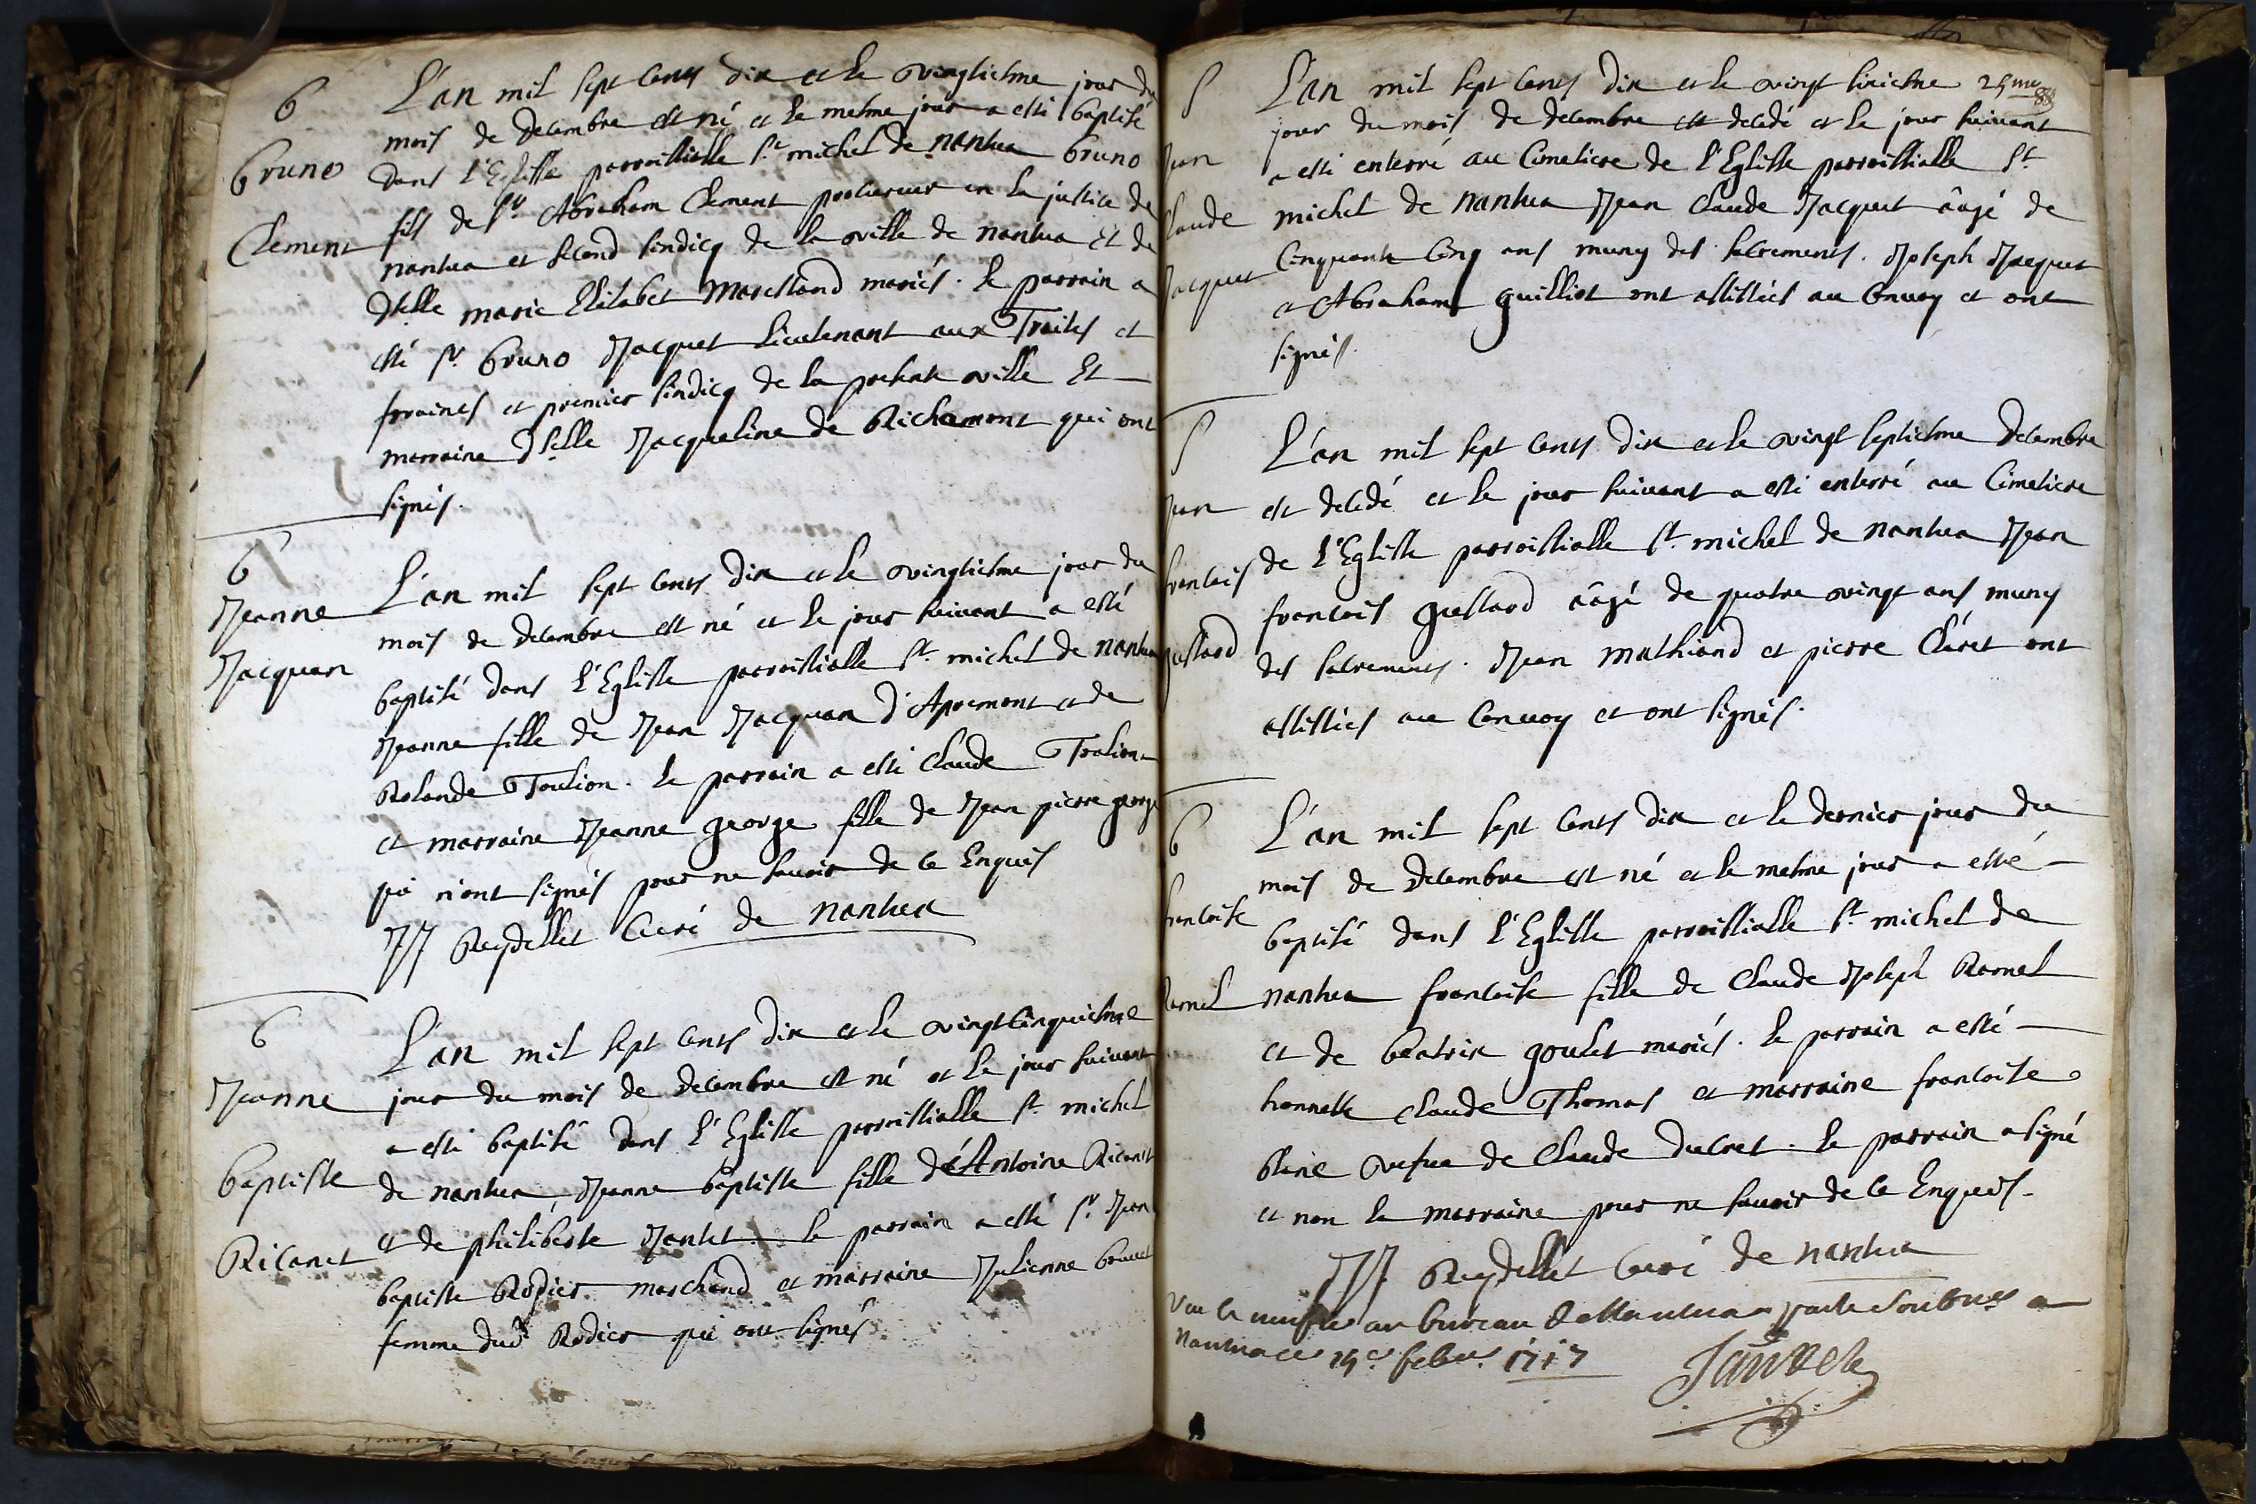 B
Bruno
Clement
L'an mil sept cents dix et le vingtiesme jour du
mois de decembre est né et le mesme jour a esté baptisé
dans l'Eglisse parroissialle St michel de nantua bruno
fils de Sr Abraham Clement procureur en la justice de
nantua et second sindicq de la ville de nantua Et de
dselle marie Elisabet Marestand mariés. le parrain a
esté Sr bruno Jacquet Lieutenant aux Traites et
foraines et premier sindicq de la presente ville Et
marraine dselle Jacqueline de Richemont qui ont
signés.
B
Jeanne
Jacquan
L'an mil sept cents dix et le vingtiesme jour du
mois de decembre est né et le jour suivant a esté
baptisé dans l'Eglisse parroissialle St michel de nantua
Jeanne fille de Jean Jacquan d'Apremont et de
Rolande Toulion. le parrain a esté Claude
et marraine Jeanne george fille de Jean pierre george
qui n'ont signés pour ne savoir de ce Enquis
JJ Reydellet Curé de nantua
B
Jeanne
baptiste
Ricanet
L'an mil sept cents dix et le vingt cinquiesme
jour du mois de decembre est né et le jour suivant
a esté baptisé dans l'Eglisse parroissialle St michel
de nantua Jeanne baptiste fille d'Antoine Ricanet
et de philiberte Jantet. le parrain a esté Sr Jean
baptiste Rodier marchand et marraine Julienne brunet
femme dud Rodier qui ont signés
S
Jean
Claude
Jacquet
L'an mil sept cents dix et le vingt sixiesme
jour du mois de decembre est decedé et le jour suivant
a esté enterré au Cimetiere de l'Eglisse parroissialle St
michel de nantua Jean Claude Jacquet âagé de
Cinquante Cinq ans muny des sacrements. Joseph Jacquet
et Abraham guilliot ont assistés au Convoy et ont
signés.
S
Jean
francois
gustard
L'an mil sept cents dix et le vingt septiesme decembre
est decedé et le jour suivant a esté enterré au Cimetiere
de l'Eglisse parroissialle St michel de nantua Jean
francois gustard âagé de quatre vingt ans muny
des sacrements. Jean Mathiand et pierre Cléret ont
assistés au Convoy et ont signés.
B
francoise
Ramel
L'an mil sept cents dix et le dernier jour du
mois de decembre est né et le mesme jour a esté
baptisé dans l'Eglisse parroissialle St michel de
nantua francoise fille de Claude Joseph Ramel
et de beatrix goulet mariés. le parrain a esté
honneste Claude Thomas et marraine francoise
blanc vefve de Claude ducret. le parrain a signé
et non la marraine pour ne savoir de ce Enquis.
JJ Reydellet Curé de nantua
au bureau de Nantua par le
Nantua ce 1717